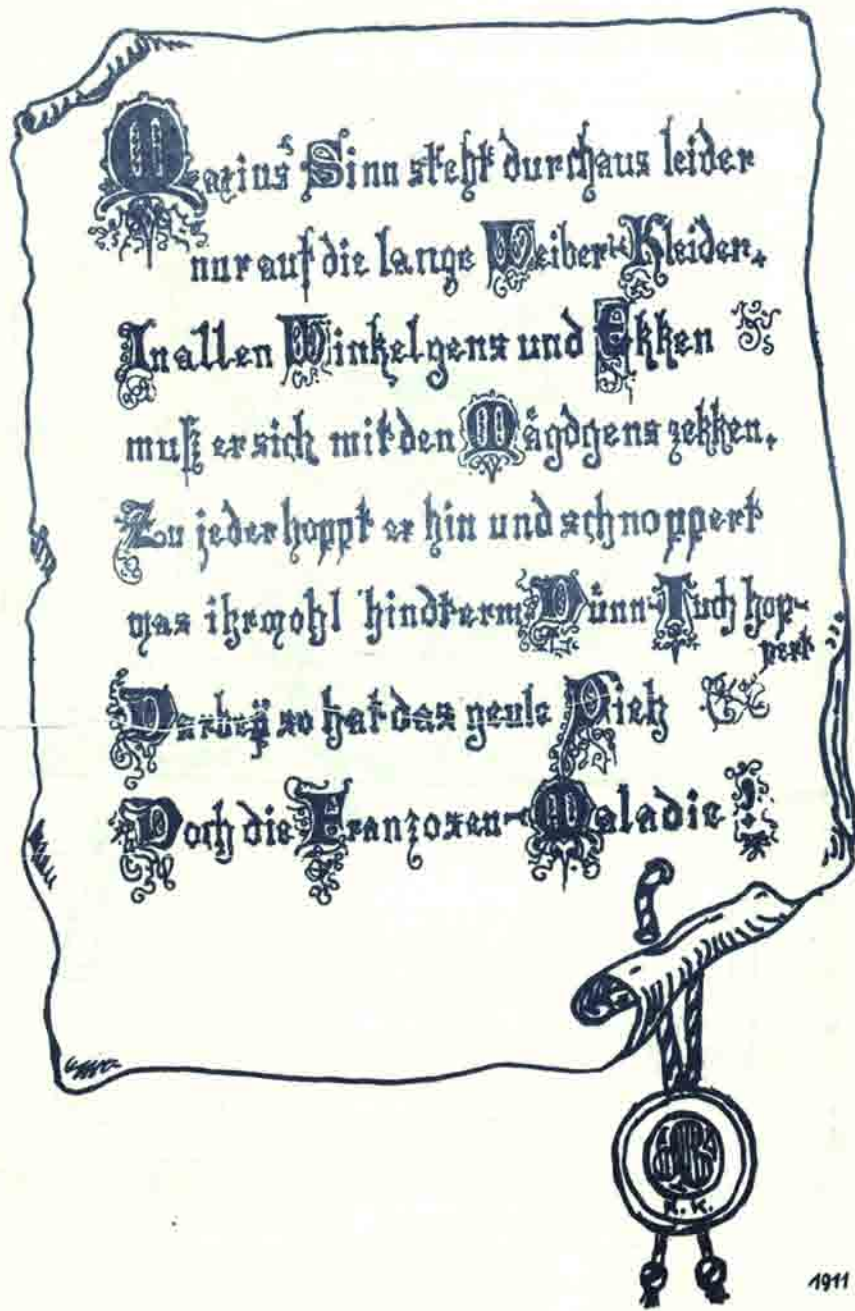 Marius' Sinn steht durchaus leider
nur auf die lange Weiber-Kleider.
In allen Winkelgens und Ekken
muß er sich mit den Mägdgens zekken.
Zu jeder hoppt er hin und schnoppert
was ihr wohl hindterm Dünn-Tuch hop-
pert
Darbeÿ so hat das geule Vieh
Doch die Franzosen-Maladie!
R. K.
1911